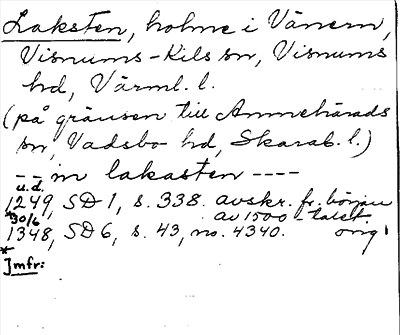 Laksten, holme i Vänern,
Visnums-Kils sn, Visnums
hd, Värml. l.
(på gränsen till Amnehärads
sn, Vadsbo hd, Skarab. l.)
-- in lakasten ----
u.d.
1249, SD 1, s. 338. avskr. fr. början
av 1500-talet
*30/6
1348, SD 6, s. 43, no. 4340. orig!
*
Jmfr: